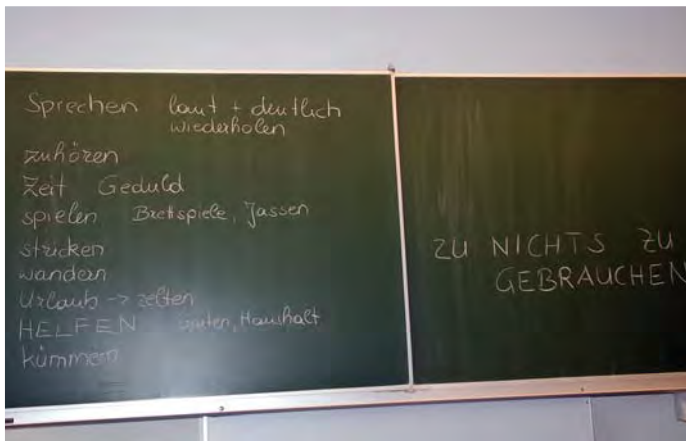 Sprechen laut + deutlich
wiederholen
zuhören
Zeit Geduld
spielen Brettspiele, Jassen
stricken
wandern
Urlaub -> zelten
HELFEN Haushalt
kümmern
ZU NICHTS ZU
GEBRAUCHEN